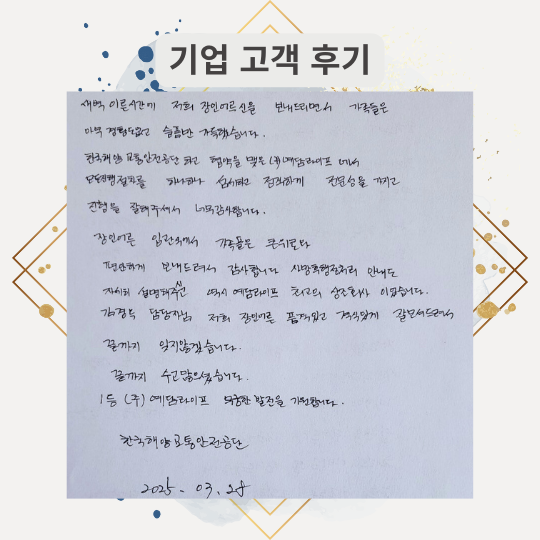 기업 고객 후기
새벽 이른시간에 저희 장인어르신을 보내드리면서 가족들은
아무 경황도없고 슬픔만 가득했습니다.
한국해양교통안전공단 하고 협약을 맺은 (주)예담라이프 에서
모든진행절차를 하나하나 섬세하고 정확하게 전문성을 가지고
진행을 잘해주셔서 너무감사합니다.
장인어른 입관식에서 가족들은 큰위로와
편안하게 보내드려서 감사합니다 사망후행정처리 안내도
자세히 설명해주신 역시 예담라이프 최고의 상조회사 이었습니다.
담당자님 저희 장인어른 품격있고 격식있게 잘모셔드려서
끝까지 잊지않겠습니다.
끝까지 수고많으셨습니다.
1등 (주)예담라이프 무궁한 발전을 기원합니다.
한국해양교통안전공단
2025. 03. 28